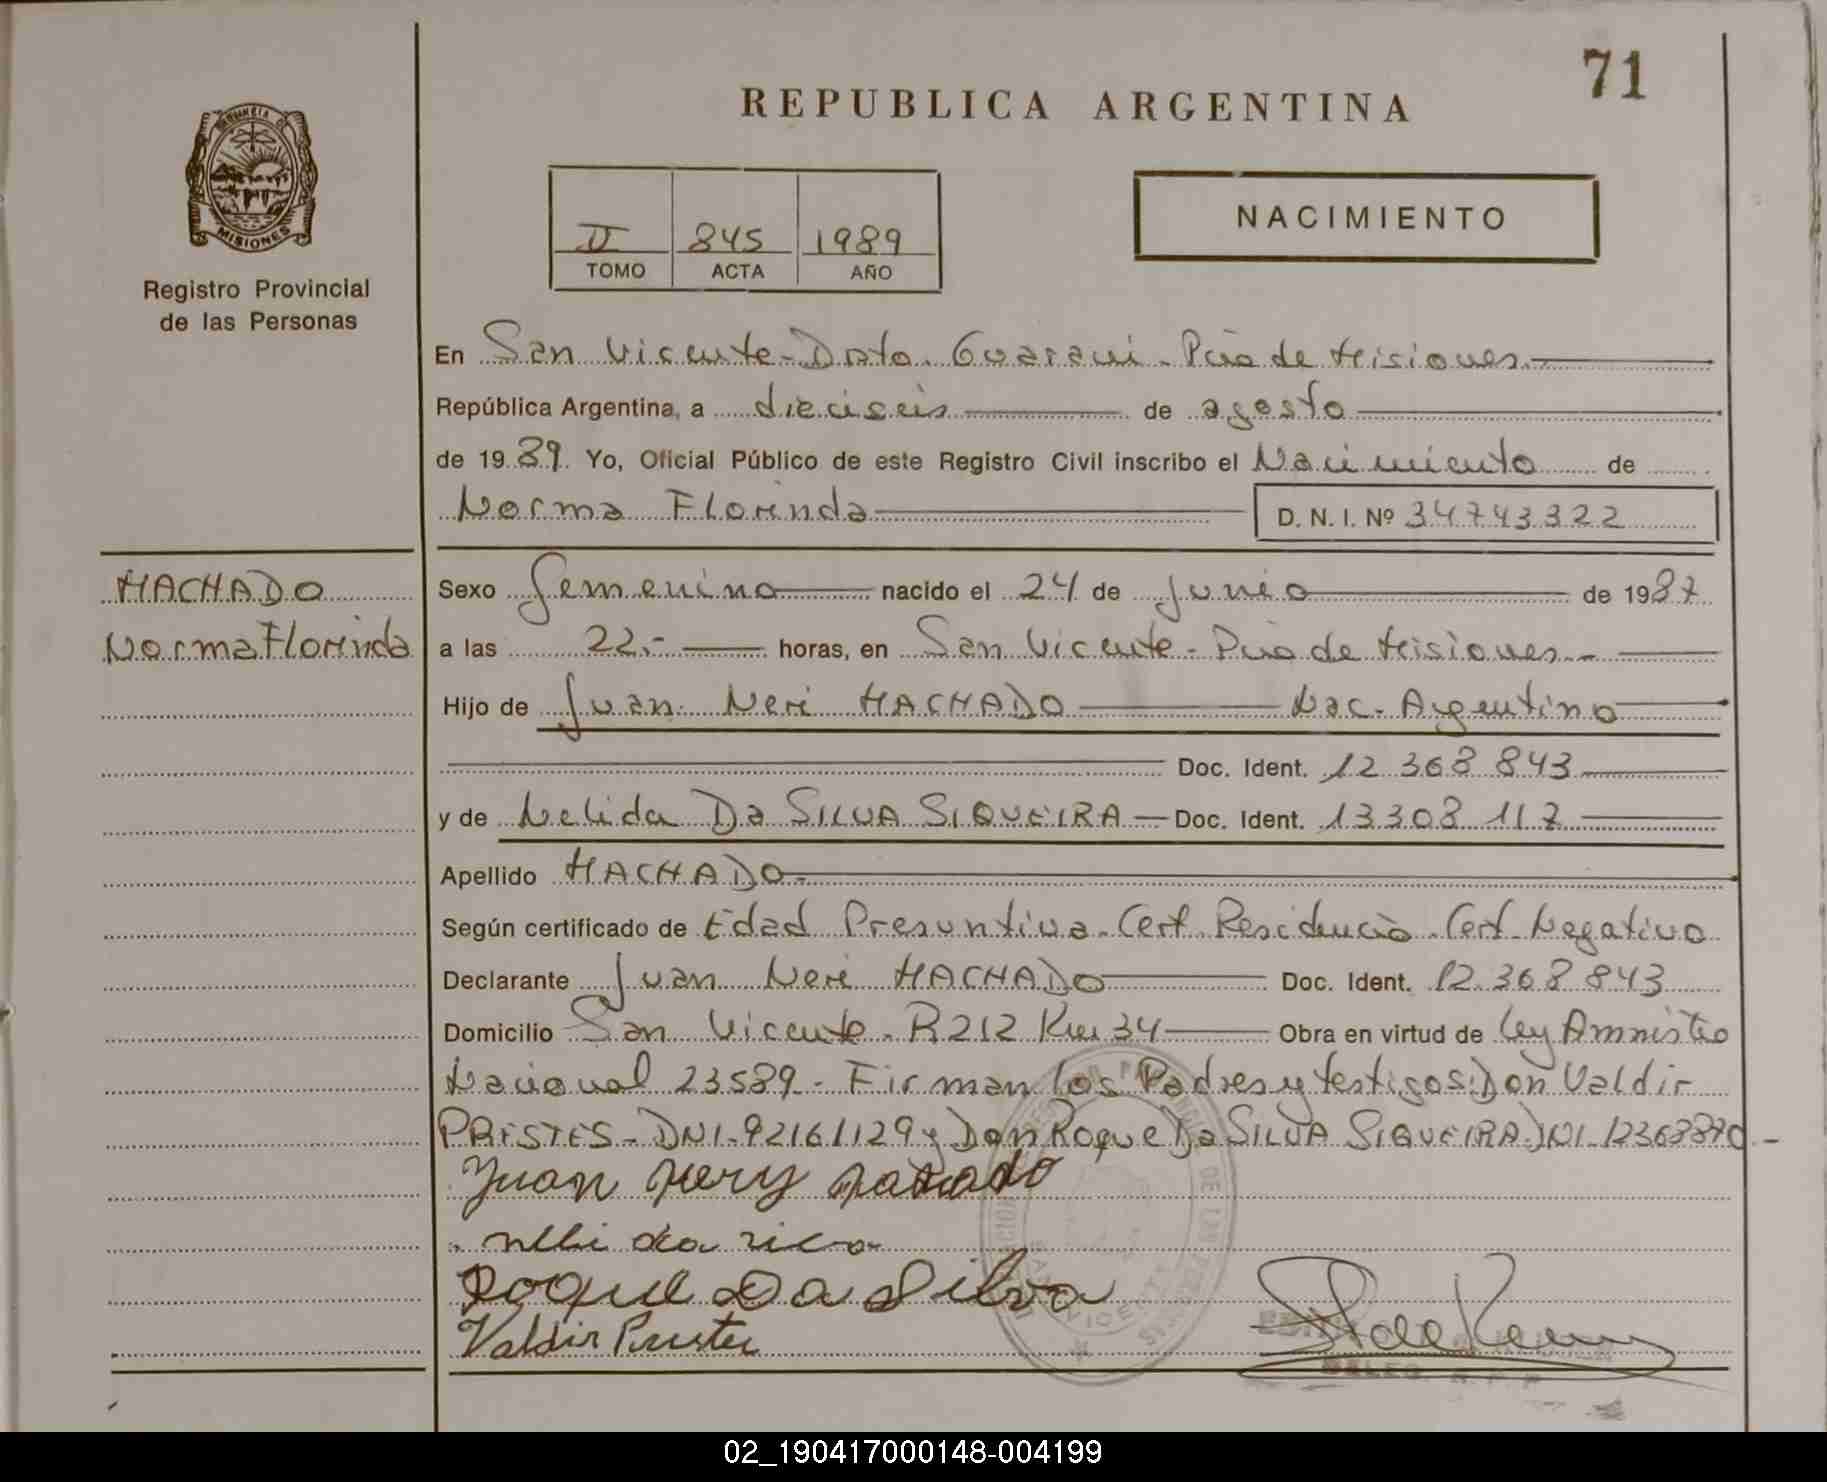 71
REPUBLICA ARGENTINA
PROVINCIA DE
MISIONES
Registro Provincial
de las Personas
II 845 1989
TOMO ACTA AÑO
NACIMIENTO
En San Vicente - Dpto. Guarani - Pcia de Misiones.
República Argentina, a dieciseis de agosto
de 1989. Yo, Oficial Público de este Registro Civil inscribo el Nacimiento de
Norma Florinda D. N. I. Nº 34743322
MACHADO
Norma Florinda
Sexo femenino nacido el 24 de junio de 1987
a las 22.- horas, en San Vicente - Pcia de Misiones.-
Hijo de Juan Neri MACHADO Nac. Argentino
Doc. Ident. 12 368 843
y de Nelida Da SILVA SIQUEIRA Doc. Ident. 13308 117
Apellido MACHADO.
Según certificado de Edad Presuntiva. Cert. Residencia. Cert. Negativo
Declarante Juan Neri MACHADO Doc. Ident. 12.368 843
Domicilio San Vicente - R212 Km 34 Obra en virtud de Ley Amnistia
Nacional 23589 - Firman los Padres y testigos: Don Valdir
PRESTES - DNI - 92161129 y Don Roque Da SILVA SIQUEIRA DNI - 12368870 -
Juan Nery Machado
Roque Da Silva
Valdir Prestes
SAN VICENTE
DELEG. R. P. P.
02_190417000148-004199